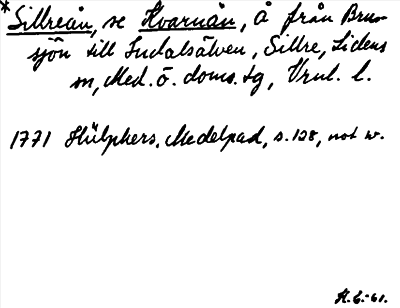 * Sillreån, se Kvarnån, å från Bru-
sjön till Indalsälven, Sillre, Lidens
sn, Med. ö. doms. tg, Vrnl. l.
1771 Hülphers, Medelpad, s. 128, not w.
H. G. -61.